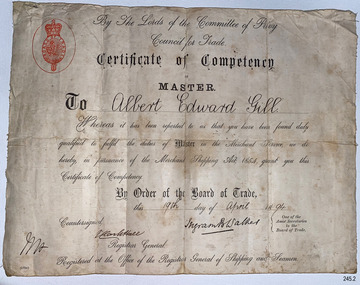 By The Lords of the Committee of Privy
Council for Trade
Certificate of Competency
MASTER.
To Albert Edward Gill
Whereas it has been reported to us that you have been found duly
qualified to fulfil the duties of Master in the Merchant Service, we do
hereby, in pursuance of the Merchant Shipping Act 1854, grant you this
Certificate of Competency.
By Order of the Board of Trade,
this 19th day of April
Countersigned,
One of the
Joint Secretaries
to the
Board of Trade.
Registrar General.
Registered at the Office of the Registrar General of Shipping and Seamen.
245.2